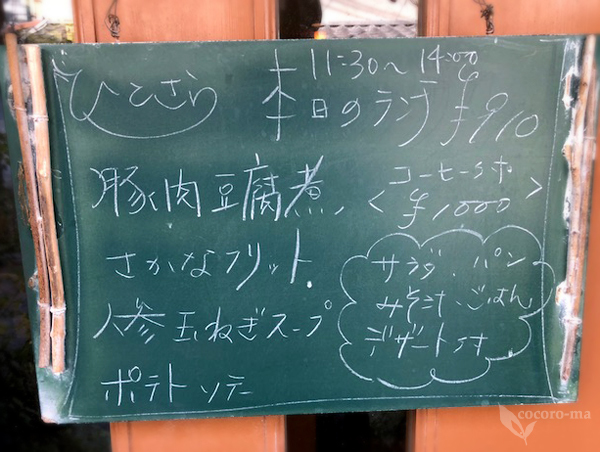 11:30〜14:00
ひとさら 本日のランチ ¥910
豚肉豆腐煮、
<コーヒーつき ¥1,000>
さかなフリット、
人参玉ねぎスープ
ポテトソテー
サラダ、パン
みそ汁、ごはん、
デザート付
cocoro-ma